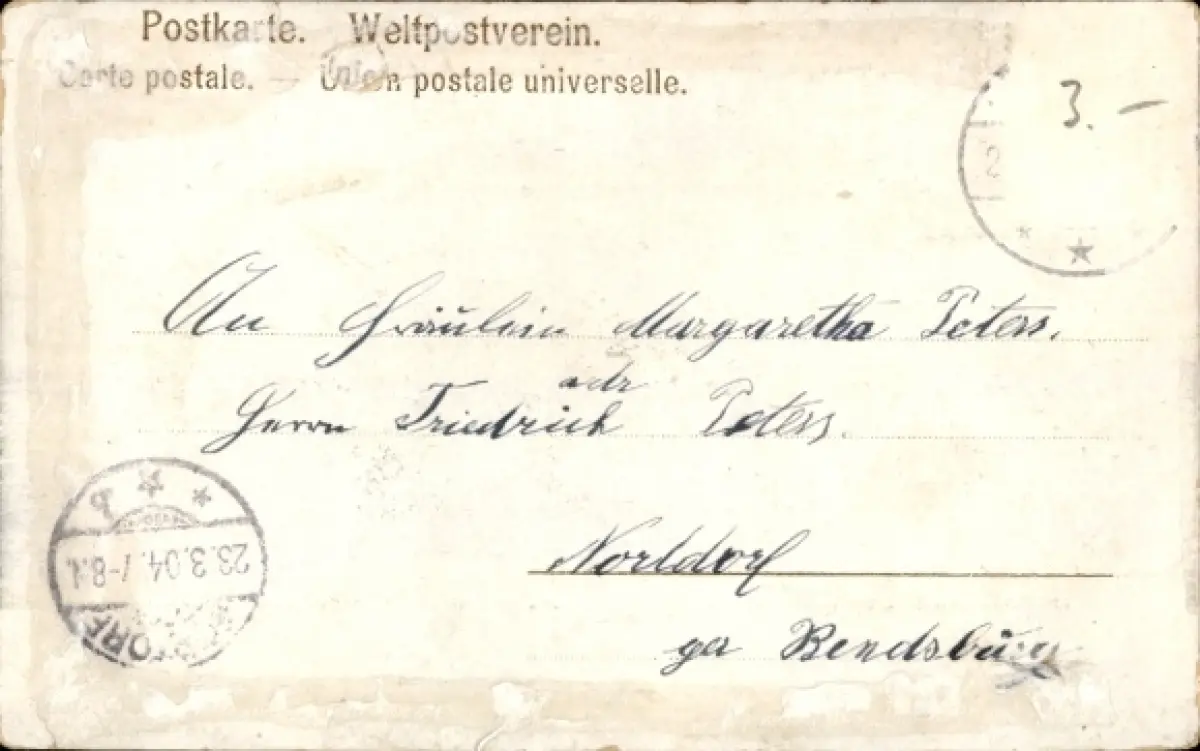 Postkarte. Weltpostverein.
Carte postale. — Union postale universelle.
3. —
An Fräulein Margaretha Peters.
adr
Herrn Friedrich Peters.
Nortdorf
23.3.04. 7-8.
TORF
Rendsburg